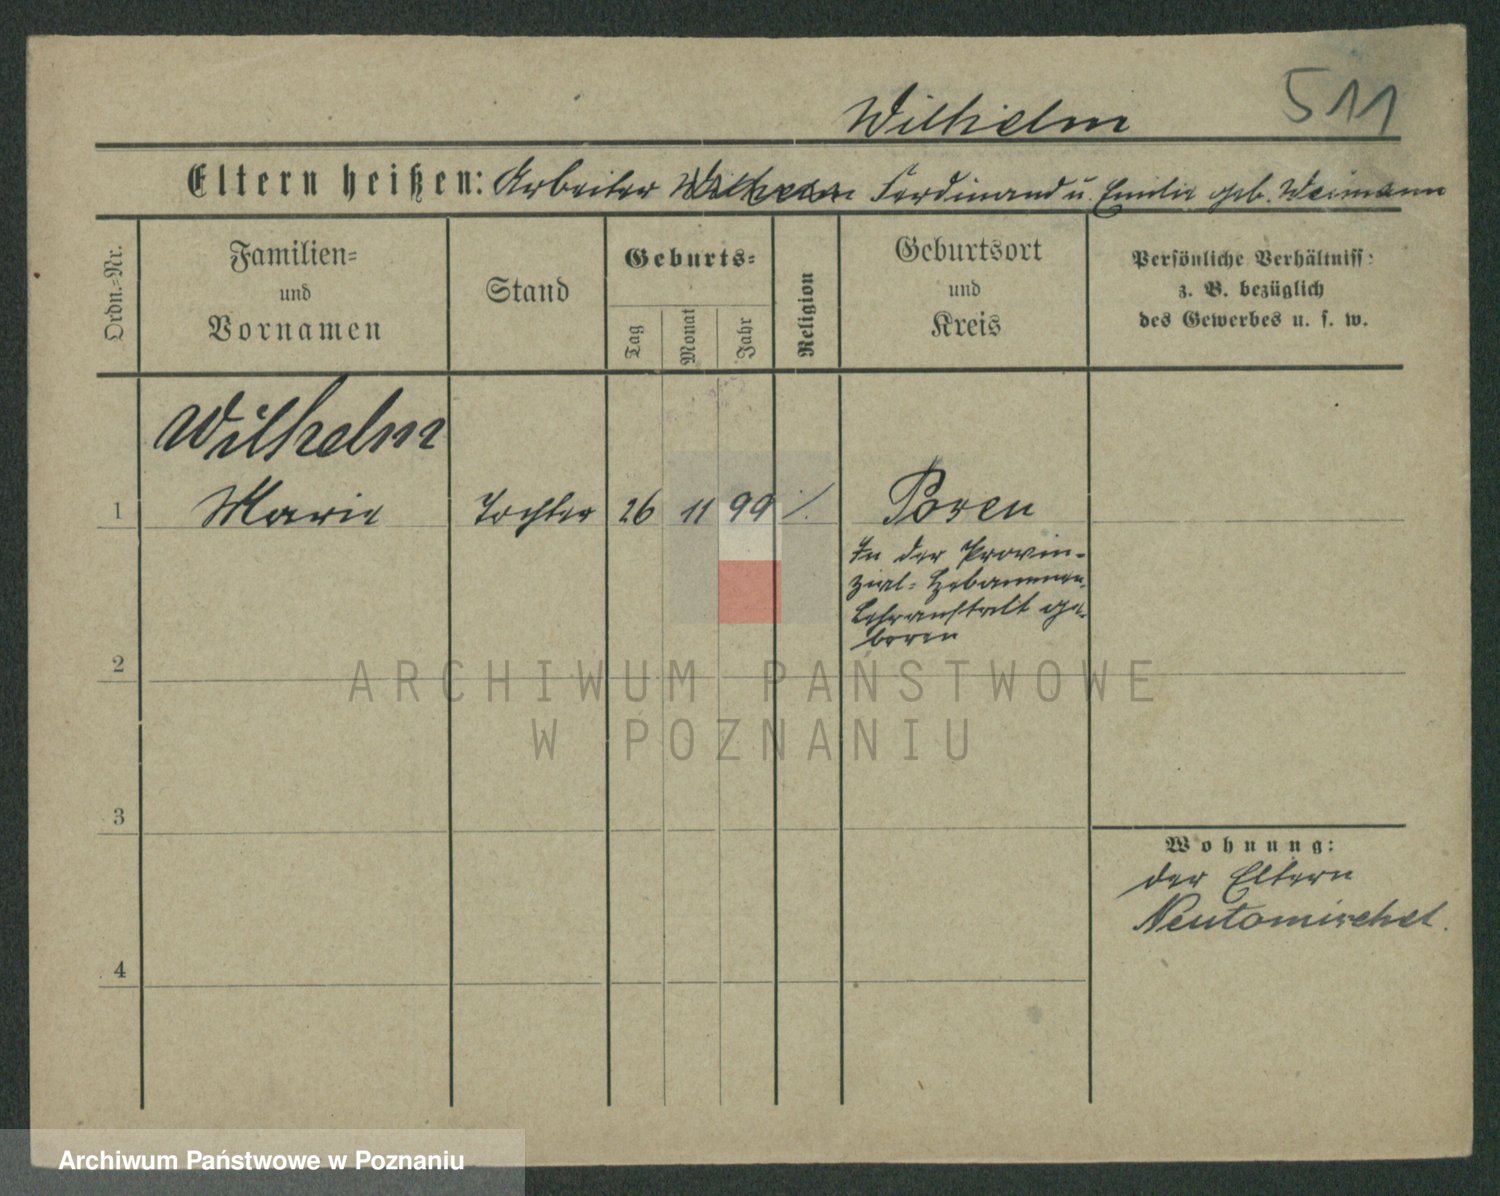 Wilhelm 511
Eltern heißen: Arbeiter Wilhelm Ferdinand u. Emilie geb. Weimann
Ordn.-Nr.
Familien-
und
Vornamen
Stand
Geburts-
Tag
Monat
Jahr
Religion
Geburtsort
und
Kreis
Persönliche Verhältniss-
z. B. bezüglich
des Gewerbes u. s. w.
Wilhelm
1 Marie Tochter 26 11 99 ./. Posen
In der Provin-
zial-Hebammen-
Lehranstalt ge-
boren
2
3
4
Wohnung:
der Eltern
Neutomischel.
ARCHIWUM PAŃSTWOWE
W POZNANIU
Archiwum Państwowe w Poznaniu